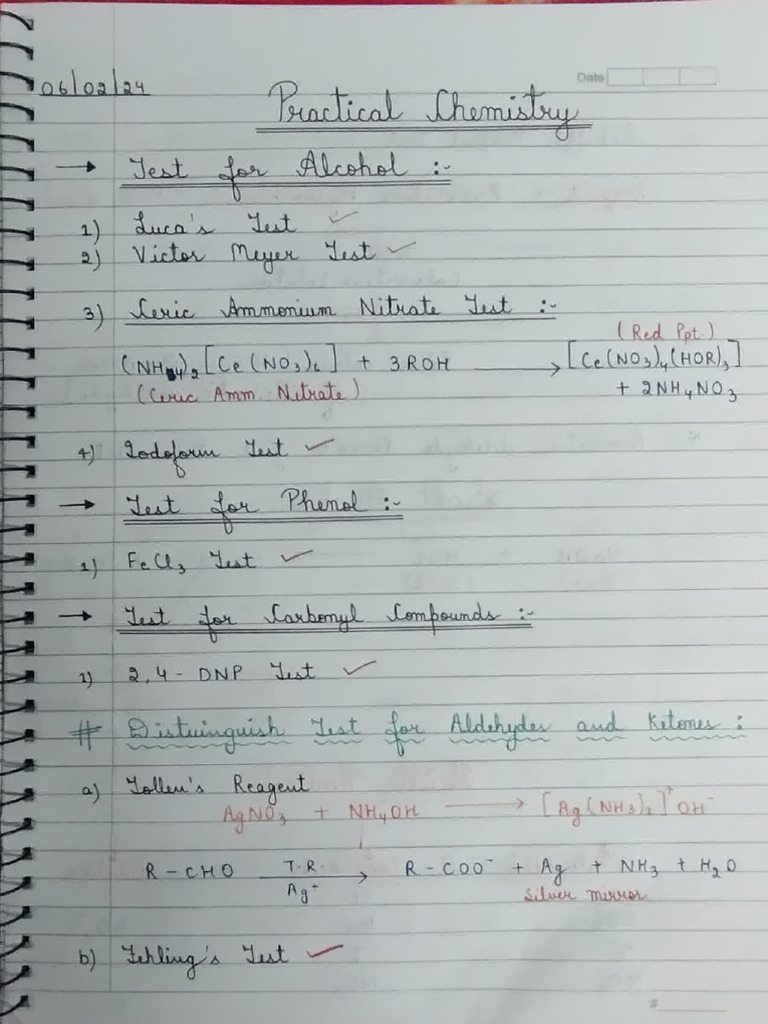 Date
06/02/24
Practical Chemistry
→ Test for Alcohol :-
1) Luca's Test ✓
2) Victor Meyer Test ✓
3) Ceric Ammonium Nitrate Test :-
(Red Ppt.)
(NH4)2[Ce(NO3)6] + 3ROH → [Ce(NO3)4(HOR)3]
(Ceric Amm. Nitrate) + 2NH4NO3
4) Iodoform Test ✓
→ Test for Phenol :-
1) FeCl3 Test ✓
→ Test for Carbonyl Compounds :-
1) 2,4-DNP Test ✓
# Distuinguish Test for Aldehydes and Ketones :
a) Tollen's Reagent
AgNO3 + NH4OH → [Ag(NH3)2]+OH-
R-CHO T.R. Ag+ → R-COO- + Ag + NH3 + H2O
Silver mirror
b) Fehling's Test ✓